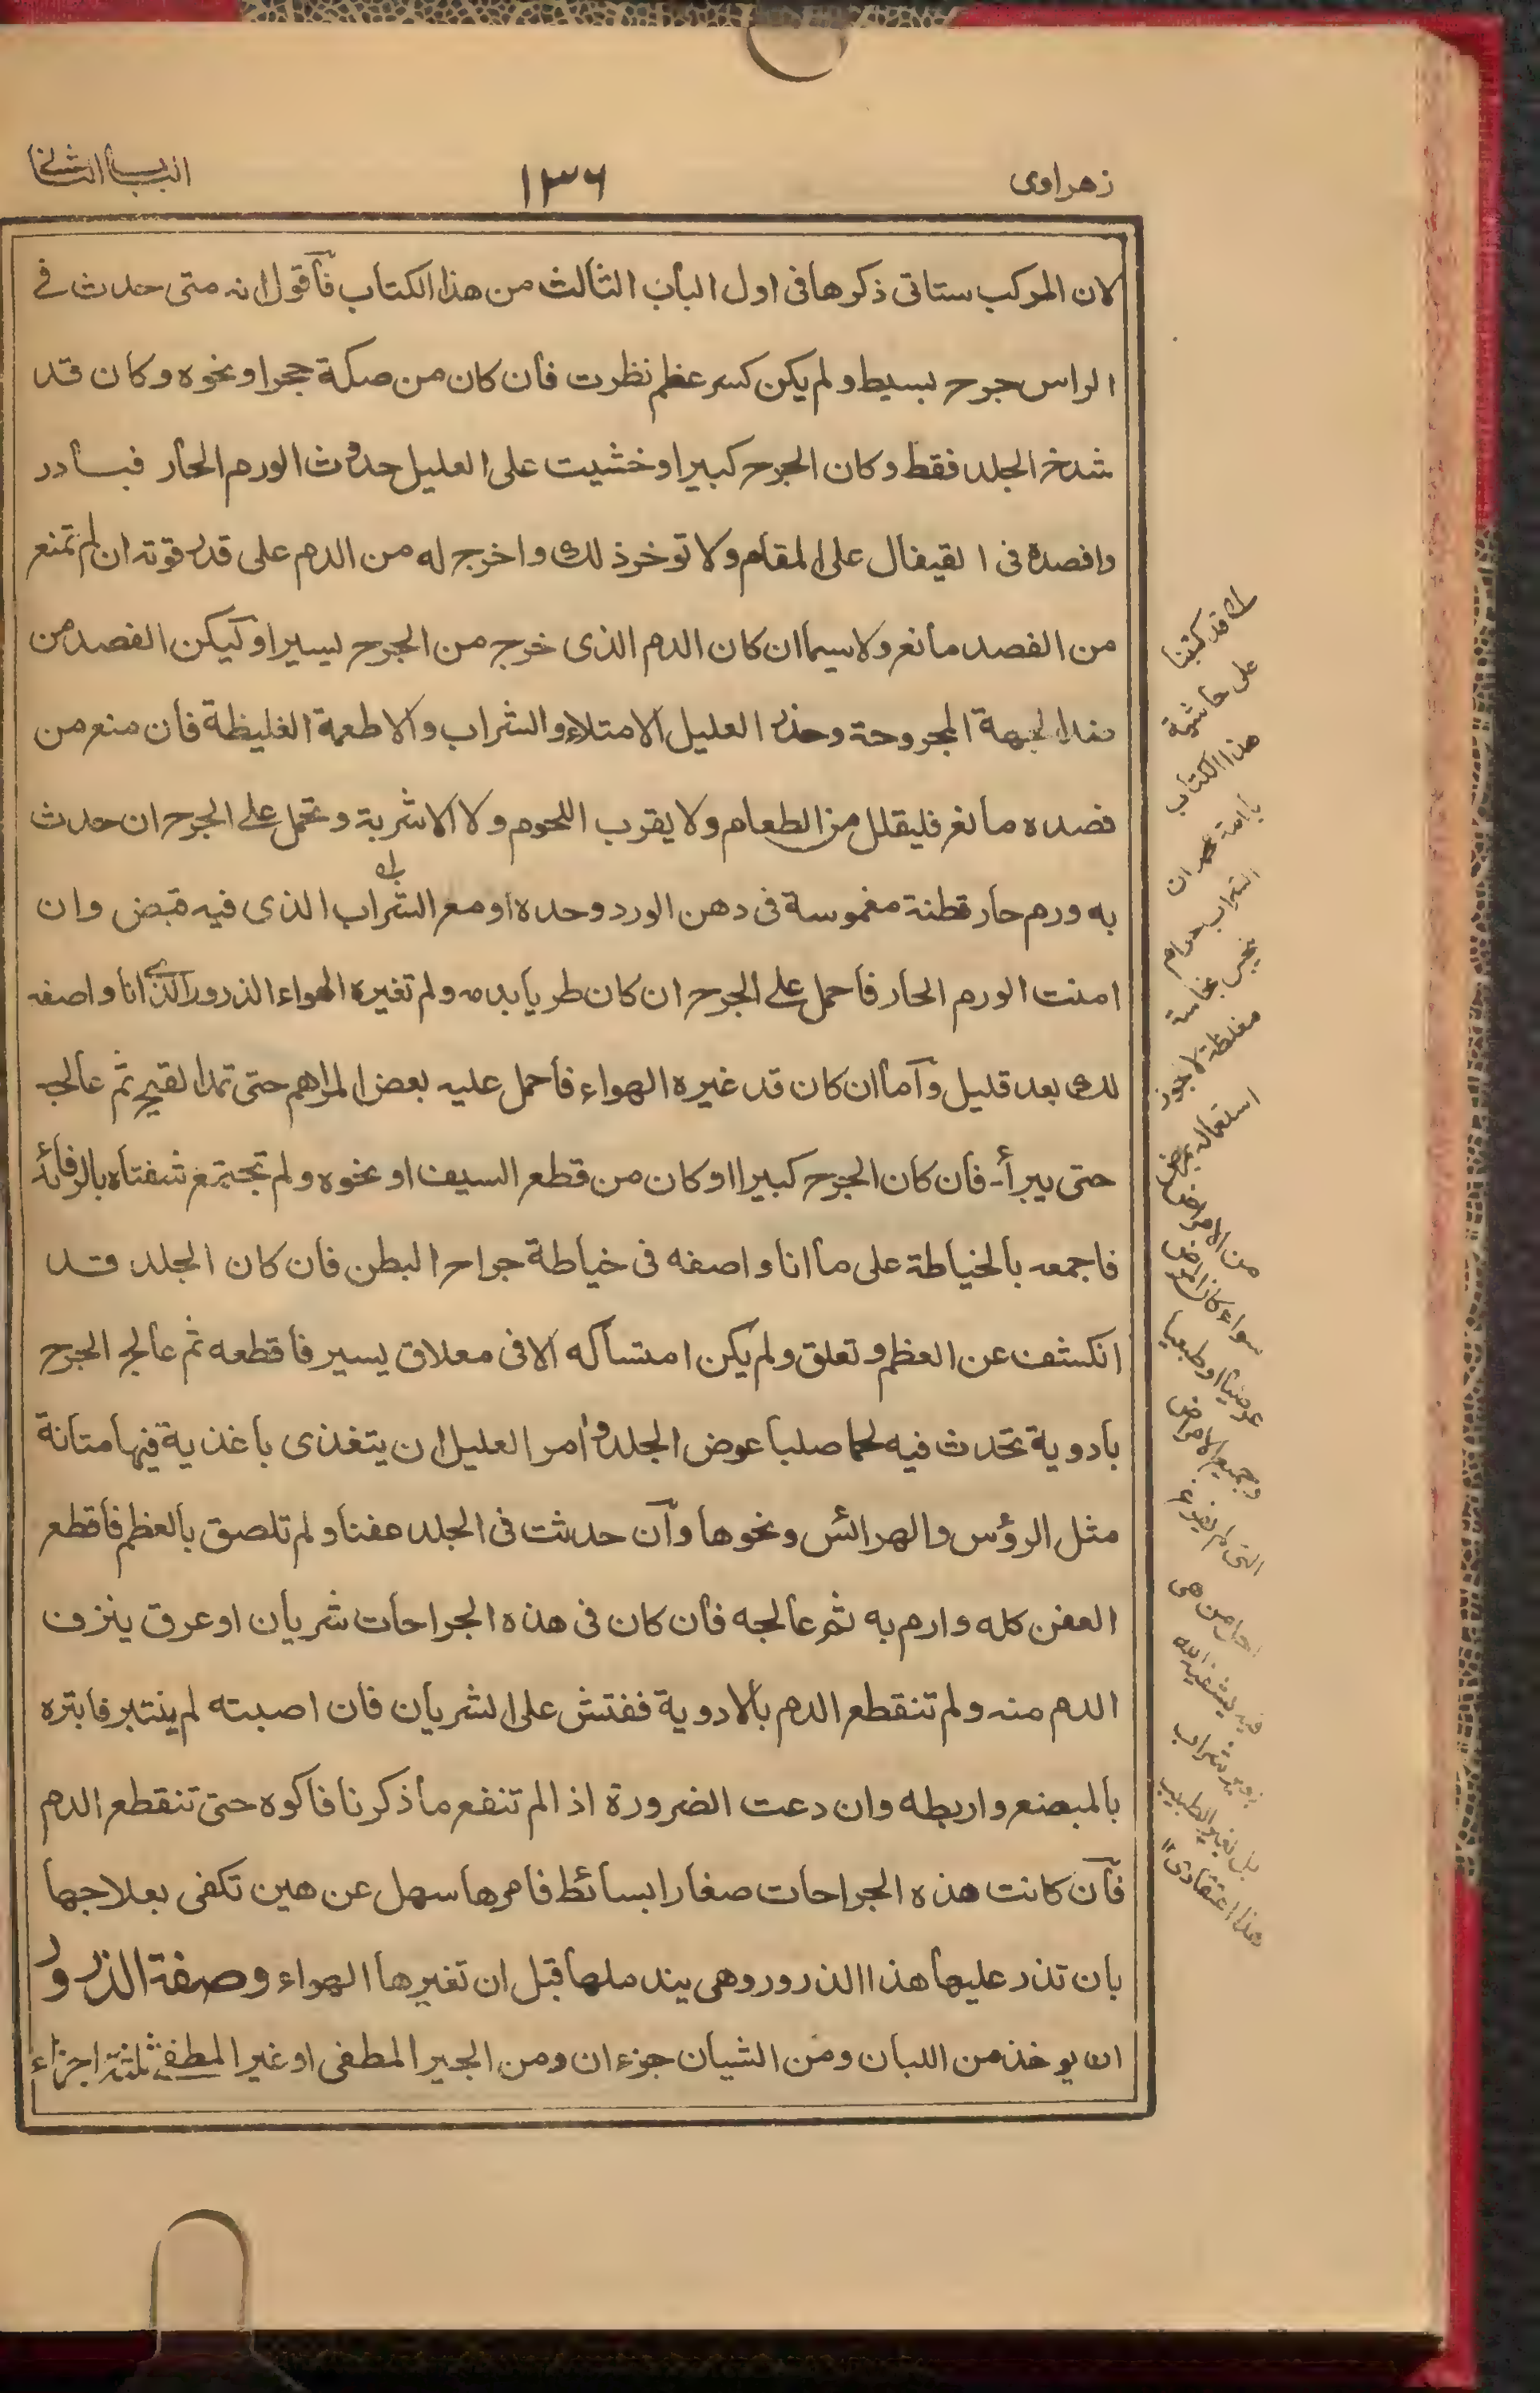 زهراوی
١٣٦
الباب الثانی
لان المركب ستاتی ذكرها فی اول الباب الثالث من هذا الكتاب فأقول انه متی حدث فے
الراس جرح بسيط ولم يكن كسر عظم نظرت فأن كان من صكة حجر او نحوه وكان قد
شدخ الجلد فقط وكان الجرح كبيرا وخشيت علی العليل حدوث الورم الحأر فبادر
وافصده فی القيفال علی المقام ولا توخر ذلك واخرج له من الدم علی قدر قوته ان لم تمنع
من الفصد مأنع ولاسيما ان كان الدم الذی خرج من الجرح يسيرا وليكن الفصد من
ضد الجهة المجروحة وحذر العليل الامتلاء والشراب والاطعمة الغليظة فأن منع من
فصده مانع فليقلل من الطعام ولا يقرب اللحوم ولا الاشربة وتحمل علے الجرح ان حدث
به ورم حأر قطنة مغموسة فی دهن الورد وحده او مع الشراب الذی فيه قبض وان
امنت الورم الحأر فأحمل علے الجرح ان كان طريأ بدمه ولم تغيره الهواء الذرور الذی انأ واصفه
لك بعد قليل وأمأ ان كان قد غيره الهواء فأحمل عليه بعض المراهم حتی تمد القيح ثم عألجه
حتی يبرأ۔ فأن كان الجرح كبيرا او كان من قطع السيف او نحوه ولم تجتمع شفتأه بالرفأئد
فأجمعه بألخياطة علی مأ انا واصفه فی خياطة جراح البطن فأن كان الجلد قد
انكشف عن العظم وتعلق ولم يكن امتسأكه الا فی معلاق يسير فأقطعه ثم عألج الجرح
بأدوية تحدث فيه لحما صلبأ عوض الجلد وأمر العليل ان يتغذی باغذية فيها متانة
مثل الرؤس والهرائس ونحوها وأن حدثت فی الجلد عفنأ ولم تلصق بألعظم فأقطع
العفن كله وارم به ثم عألجه فأن كان فی هذه الجراحأت شريأن او عرق ينزف
الدم منه ولم تنقطع الدم بألادوية ففتش علی الشريأن فأن اصبته لم ينتبر فابتره
بألمبضع واربطه وان دعت الضرورة اذا لم تنفع مأ ذكرنأ فأكوه حتی تنقطع الدم
فأن كانت هذه الجراحات صغارا بسأئط فأمرها سهل عن هين تكفی بعلاجهأ
بان تذر عليهأ هذا الذرور وهی يندملهأ قبل ان تغيرهأ الهواء وصفة الذرور
ان يوخذ من اللبان ومن الشيان جزءان ومن الجير المطفی او غير المطفے ثلثة اجزاء
قد كتبنا
علی حأشية
هذا الكتاب
ان
الشراب حرام
نجس نجاسة
مغلظة لا يجوز
استعماله
من الامراض
سواء كان المرض
عرضيأ او طبعيأ
وجميع الامراض
التی لم
هی
يشفيه الله
بغير شراب
بل بغير الطبيب
هذا اعتقادی